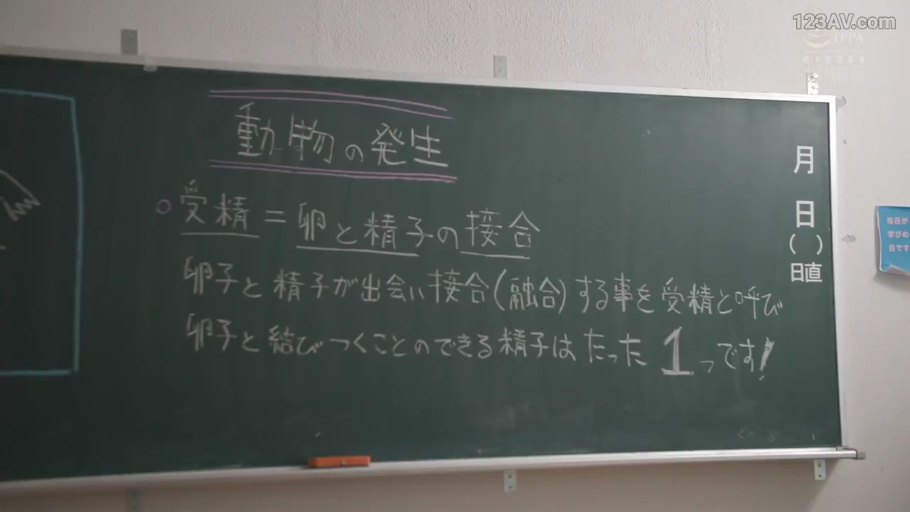 123AV.com
動物の発生
○受精=卵と精子の接合
卵子と精子が出会い接合(融合)する事を受精と呼び
卵子と結びつくことのできる精子はたった1つです!
月
日
( )
日直
毎日が
学びの
日です